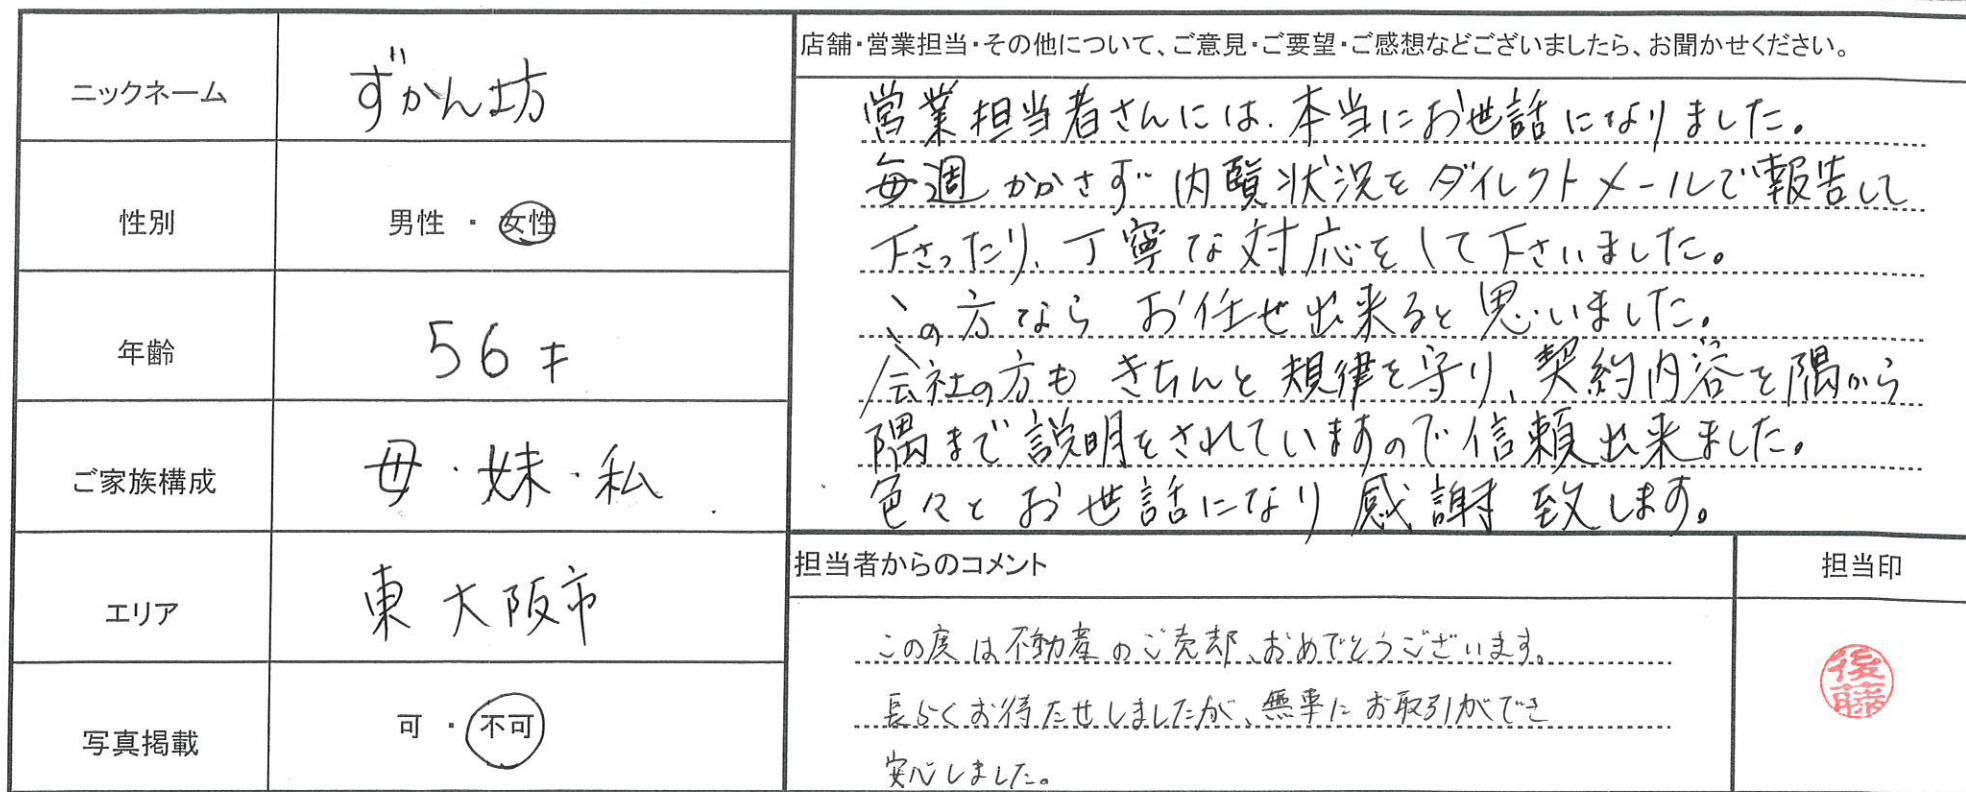 ニックネーム
ずかん坊
性別
男性 ・ 女性
年齢
56才
ご家族構成
母・妹・私
エリア
東大阪市
写真掲載
可 ・ 不可
店舗・営業担当・その他について、ご意見・ご要望・ご感想などございましたら、お聞かせください。
営業担当者さんには、本当にお世話になりました。
毎週かかさず内覧状況をダイレクトメールで報告して
下さったり、丁寧な対応をして下さいました。
この方ならお任せ出来ると思いました。
会社の方もきちんと規律を守り、契約内容を隅から
隅まで説明をされていますので信頼出来ました。
色々とお世話になり感謝致します。
担当者からのコメント
この度は不動産のご売却、おめでとうございます。
長らくお待たせしましたが、無事にお取引ができ
安心しました。
担当印
後藤